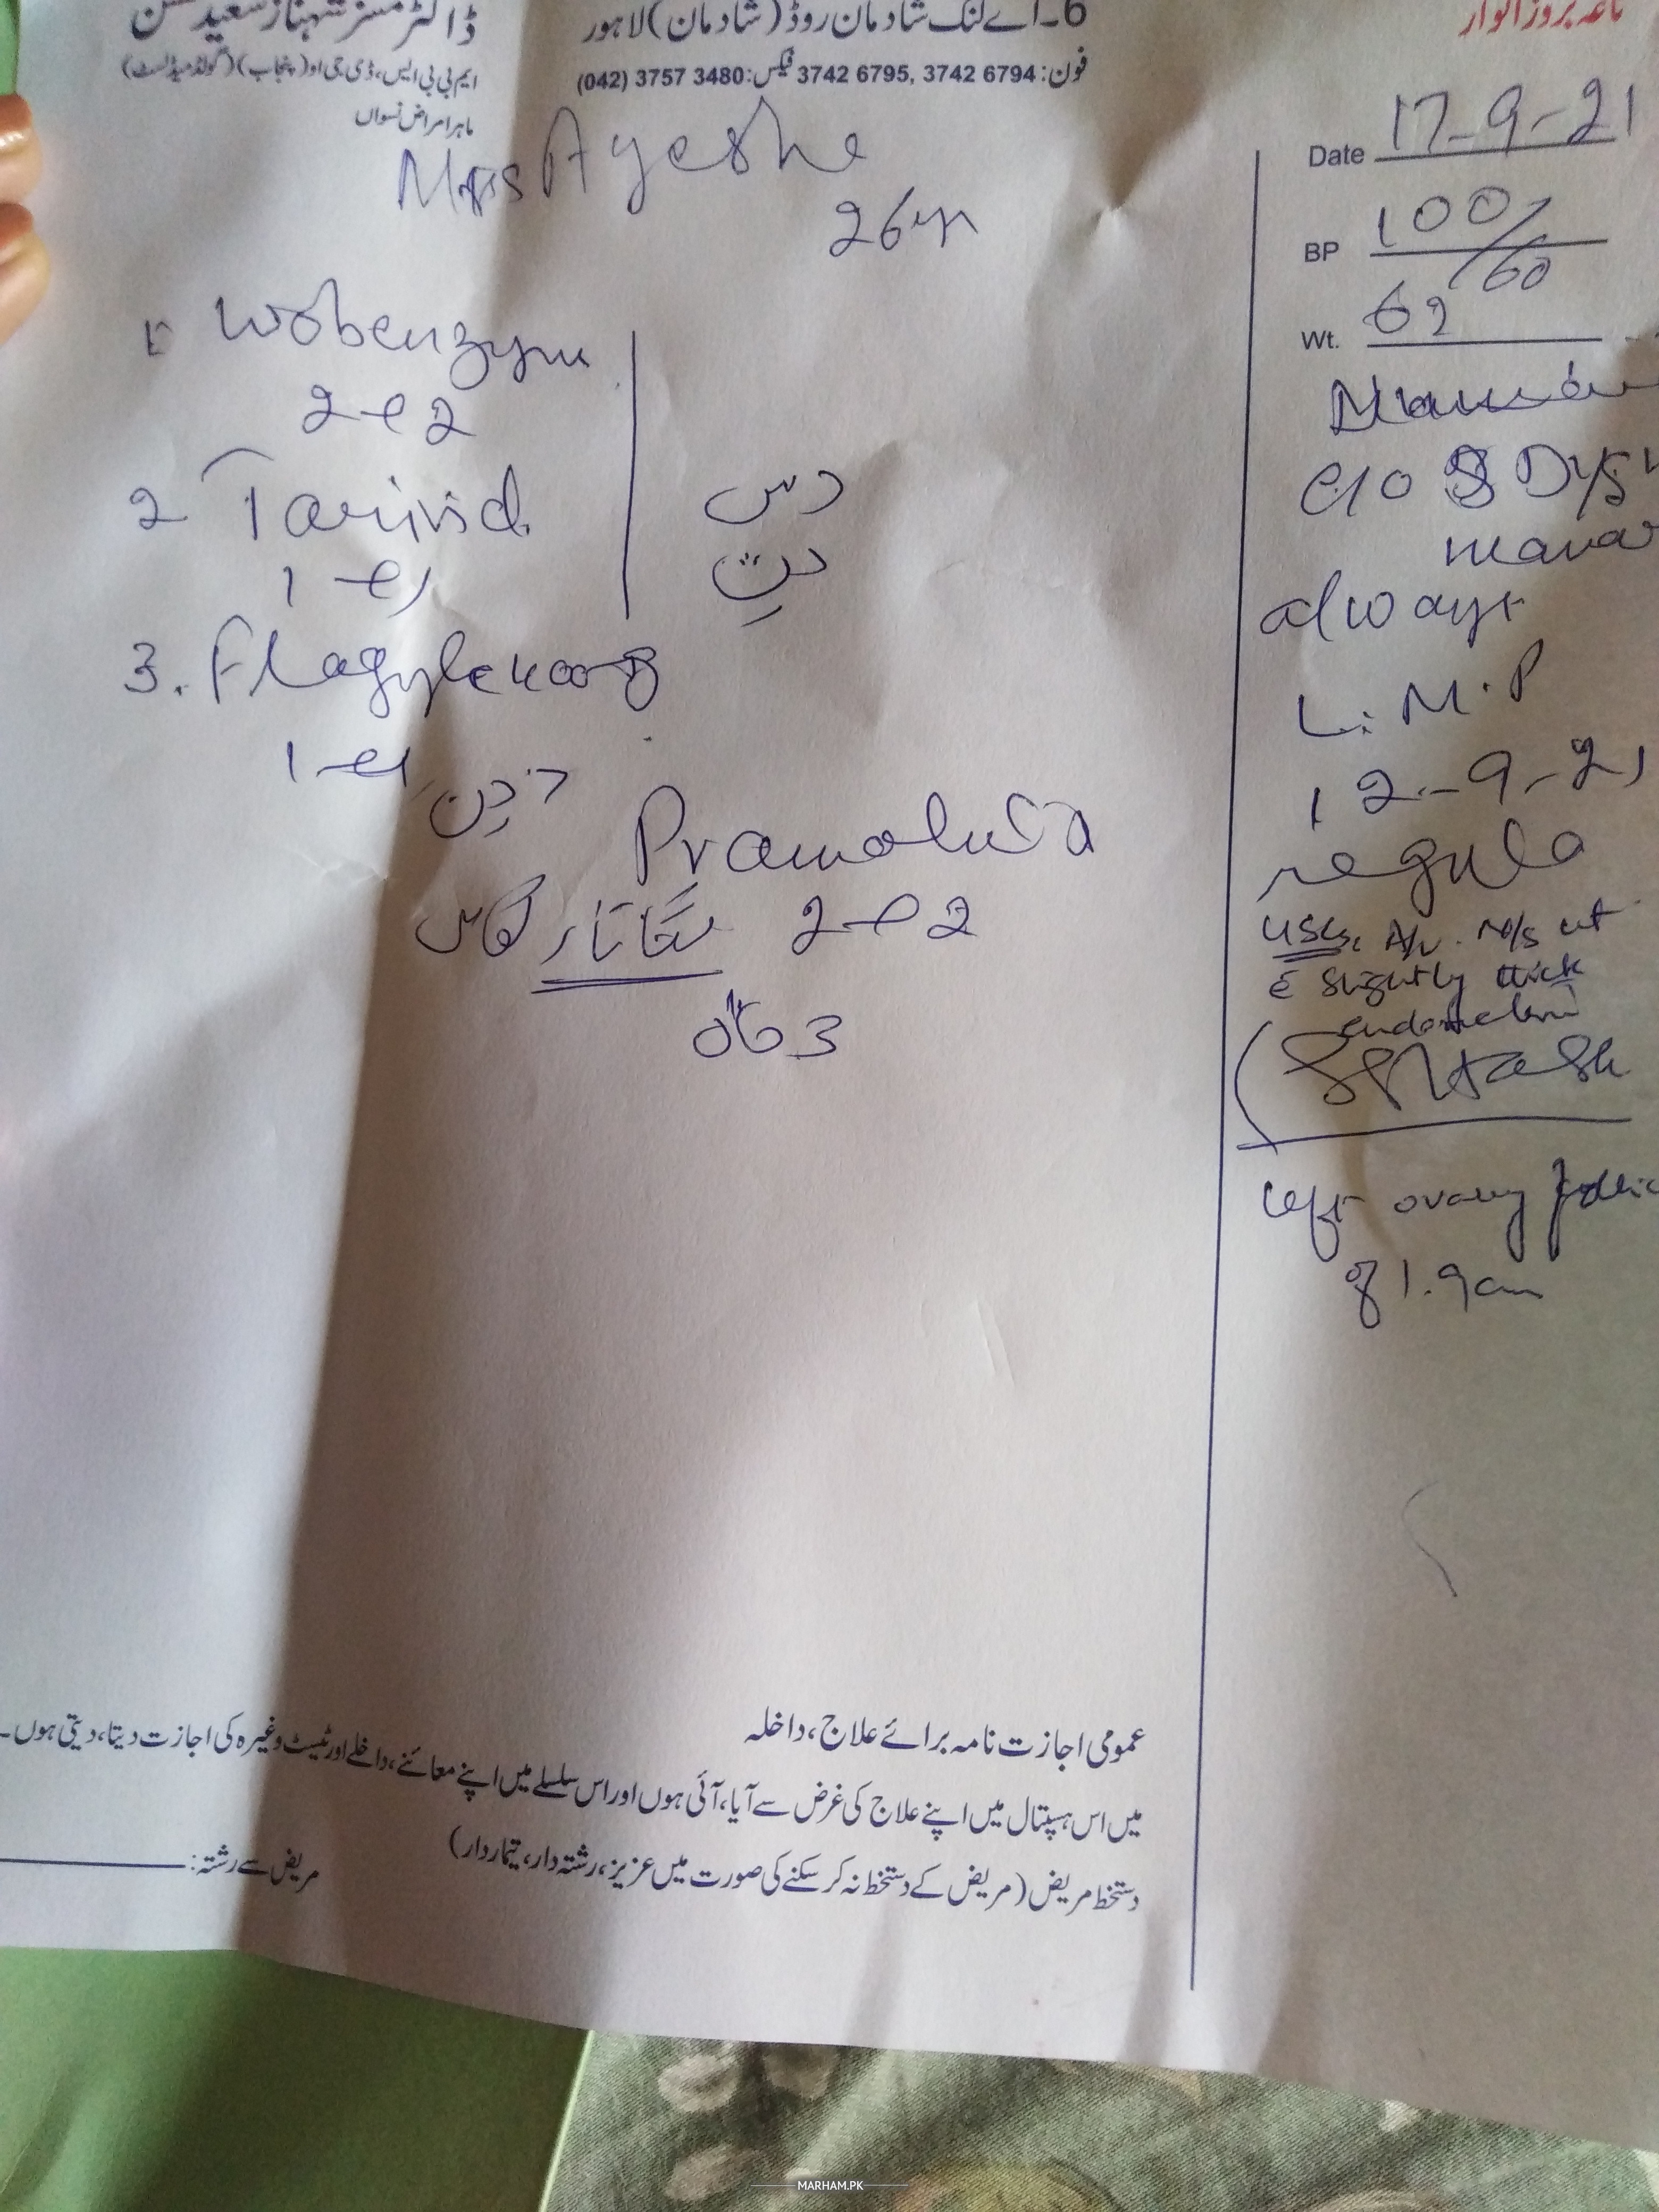 ڈاکٹر مسز شہناز سعید حسن
ایم بی بی ایس، ڈی جی او (پنجاب) (گولڈ میڈلسٹ)
ماہر امراض نسواں
6-اے لنک شادمان روڈ (شادمان) لاہور
فون: 3742 6795, 3742 6794 فیکس: (042) 3757 3480
ناغہ بروز اتوار
Mrs Ayesha
26yr
1. Wobenzym
2-e2
2 Tarivid
1-e1
دس
دن
3. Flagyl 400
1-e1
دن
2-e2
لگاتار
3 ماہ
Date 17-9-21
BP 100/60
Wt. 62
c/o Dys
always
L.M.P
12-9-21
regula
USG, A/V. N/S ut
c̄ slightly thick
endometrium
left ovary follic
of 1.9cm
عمومی اجازت نامہ برائے علاج، داخلہ
میں اس ہسپتال میں اپنے علاج کی غرض سے آیا، آئی ہوں اور اس سلسلے میں اپنے معائنے، داخلے اور ٹیسٹ وغیرہ کی اجازت دیتا، دیتی ہوں۔
دستخط مریض (مریض کے دستخط نہ کر سکنے کی صورت میں عزیز، رشتہ دار، تیماردار)
مریض سے رشتہ:
MARHAM.PK